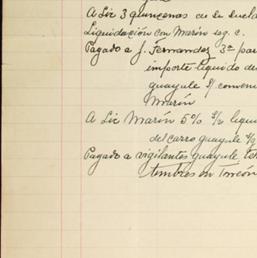 A Lic 3 quincenas de su sueld
Liquidación con Marón seg. c.
Pagado a J. Fernandez 3ª par
importe liquido de
guayule s/ conveni
Marón
A Lic Marón 5% s/ liqui
del carro guayule
Pagado a vigilantes guayule, tom
timbres en Torreón